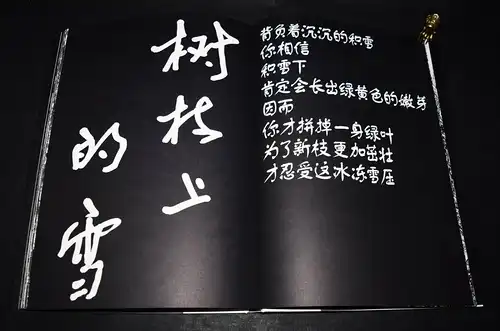 树枝上
的雪
背负着沉沉的积雪
你相信
积雪下
肯定会长出绿黄色的嫩芽
因而
你才拼掉一身绿叶
为了新枝更加茁壮
才忍受这冰冻雪压